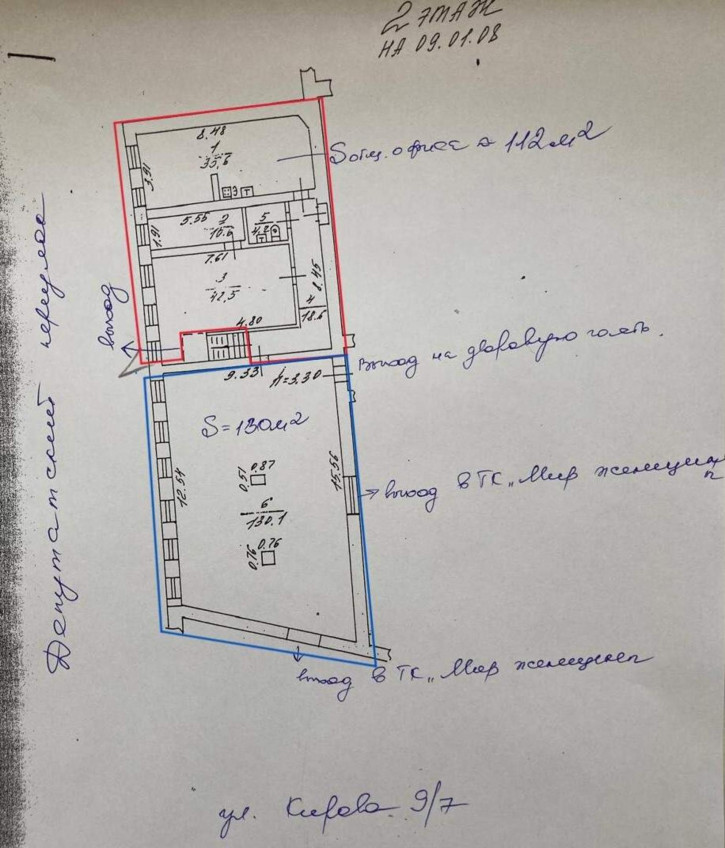 2 ЭТАЖ
НА 09.01.08
8.48
1
33,6
3,91
Sобщ. офиса = 112 м2
5.55
2
10.6
5
4,2
1.91
7.61
3
42,5
8.45
4
18.6
4.80
выход
Депутатский переулок
9.53
H=3.30
Выход на дворовую часть.
S=130м2
0,87
0,51
12.54
15.56
выход в ТК „Мир женщины
6
130.1
0.76
0,76
вход в ТК „Мир женщины
ул. Кирова 9/7